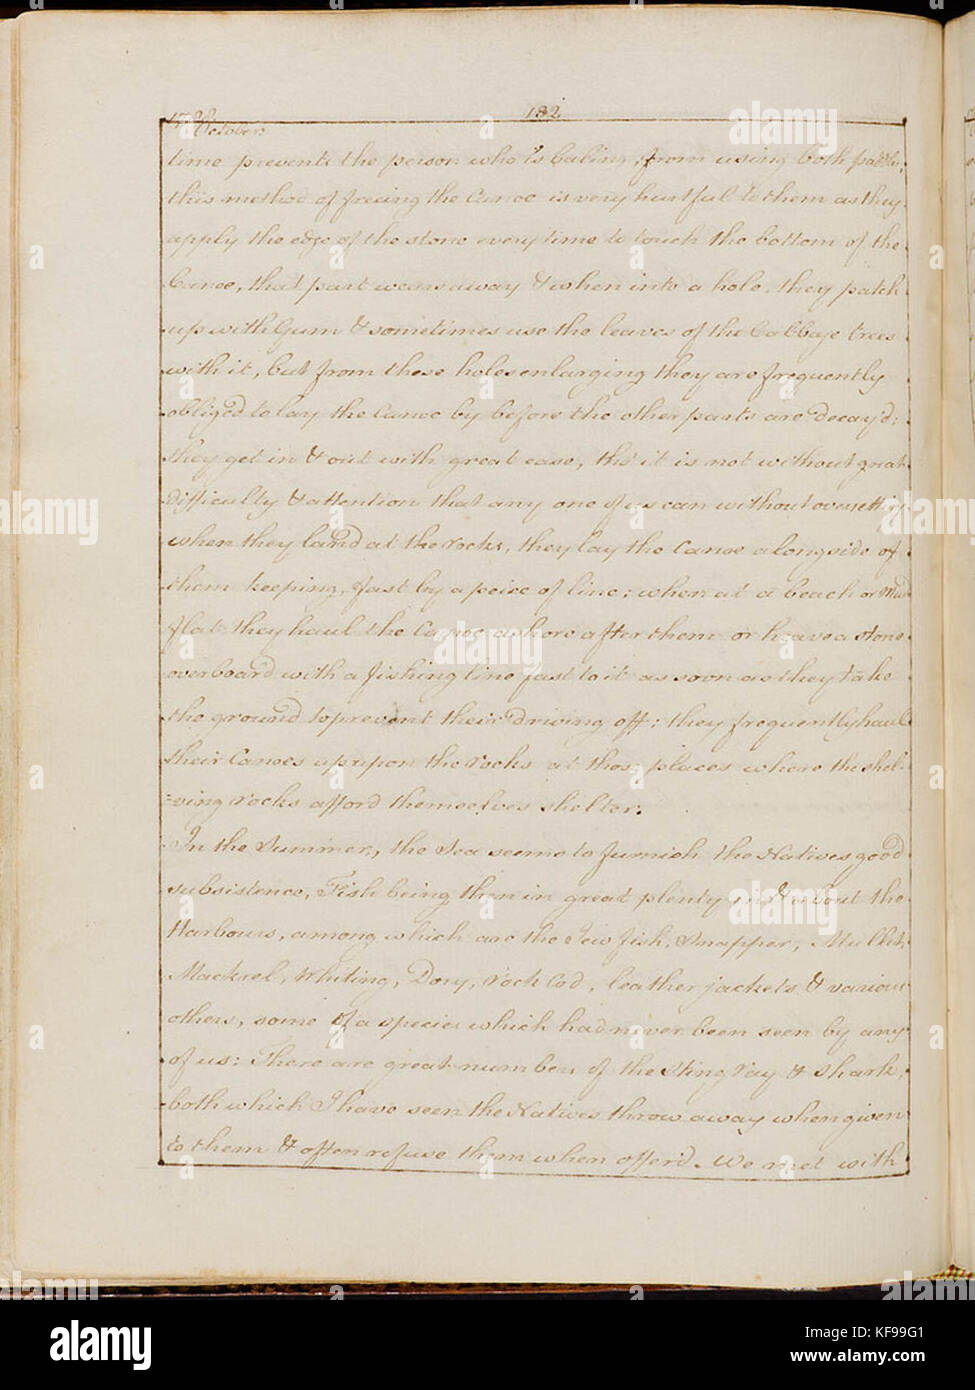 182
October.
time prevents the person who is baling, from using both paddles,
this method of freeing the Canoe is very hurtful to them as they
apply the edge of the stone every time to touch the bottom of the
Canoe, that part wears away & when into a hole, they patch
up with Gum & sometimes use the leaves of the Cabbage trees
with it, but from these holes enlarging they are frequently
obliged to lay the Canoe by before the other parts are decay'd:
they get in & out with great ease, tho' it is not without great
difficulty & attention that any one of us can without oversetting
when they land at the rocks, they lay the Canoe alongside of
them keeping fast by a peice of line; when at a beach or Mud
flat they haul the Canoe ashore after them or heave a stone
overboard with a fishing line fast to it as soon as they take
the ground to prevent their driving off; they frequently haul
their Canoes up upon the rocks at those places where the shel-
-ving rocks afford themselves shelter.
In the Summer, the Sea seems to furnish the Natives good
subsistence, Fish being then in great plenty in & about the
Harbours, among which are the Jew fish, Snapper, Mullet,
Mackrel, Whiting, Dory, rock Cod, leather jackets & various
others, some of a species which had never been seen by any
of us: There are great numbers of the Sting ray & shark,
both which I have seen the Natives throw away when given
to them & often refuse them when offer'd. We met with
alamy
KF99G1
www.alamy.com